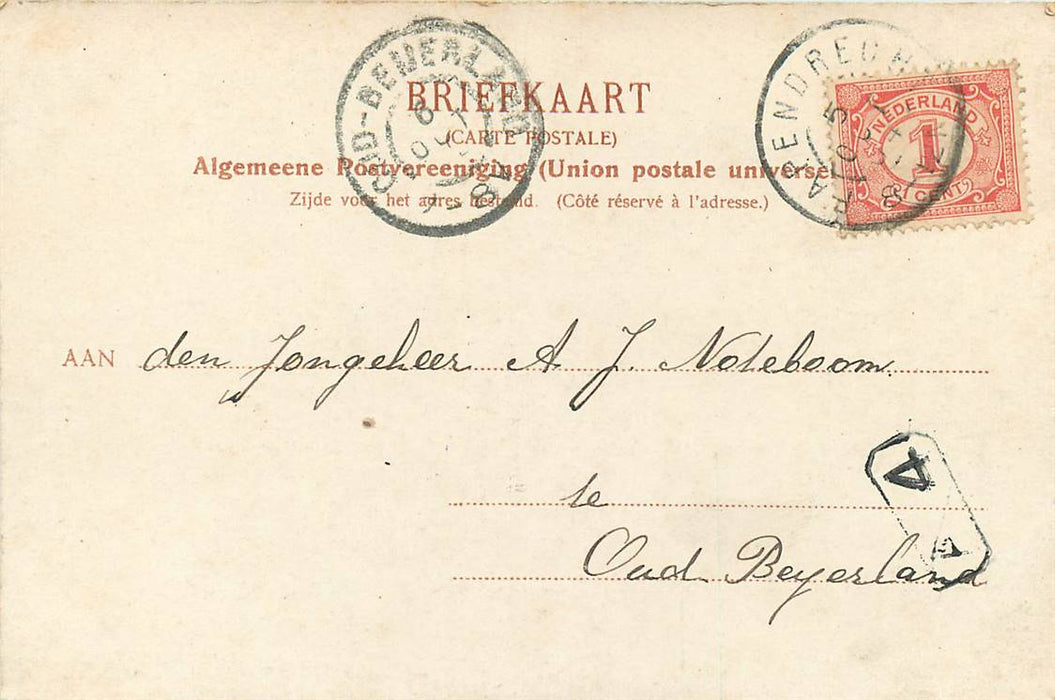 BRIEFKAART
(CARTE POSTALE)
Algemeene Postvereeniging (Union postale universelle)
Zijde voor het adres bestemd. (Côté réservé à l'adresse.)
OUD-BEIJERLAND
6 OCT
BARENDRECHT
5 OCT
NEDERLAND
1
CENT
AAN den Jongeheer A J. Noteboom.
te
Oud Beyerland
4